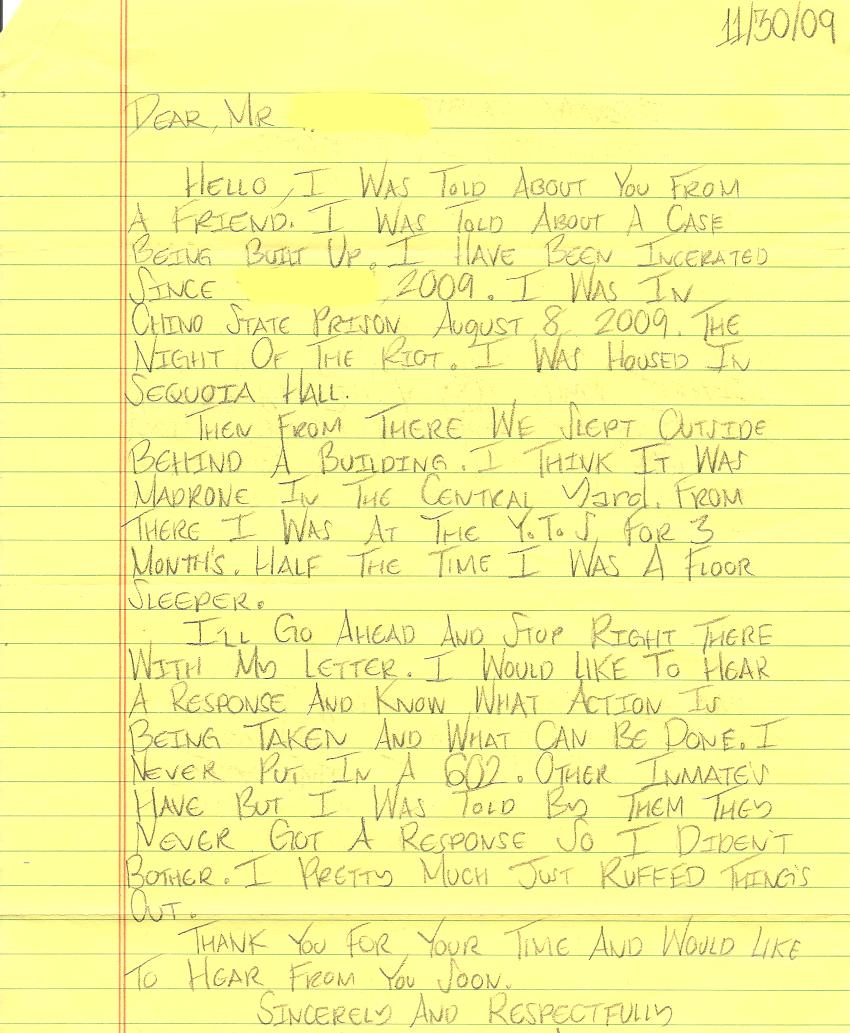 11/30/09
DEAR, MR
HELLO, I WAS TOLD ABOUT YOU FROM
A FRIEND. I WAS TOLD ABOUT A CASE
BEING BUILT UP. I HAVE BEEN INCERATED
SINCE , 2009. I WAS IN
CHINO STATE PRISON AUGUST 8, 2009. THE
NIGHT OF THE RIOT. I WAS HOUSED IN
SEQUOIA HALL.
THEN FROM THERE WE SLEPT OUTSIDE
BEHIND A BUILDING. I THINK IT WAS
MADRONE IN THE CENTRAL YARD. FROM
THERE I WAS AT THE Y.T.S, FOR 3
MONTH'S. HALF THE TIME I WAS A FLOOR
SLEEPER.
I'LL GO AHEAD AND STOP RIGHT THERE
WITH MY LETTER. I WOULD LIKE TO HEAR
A RESPONSE AND KNOW WHAT ACTION IS
BEING TAKEN AND WHAT CAN BE DONE. I
NEVER PUT IN A 602. OTHER INMATE'S
HAVE BUT I WAS TOLD BY THEM THEY
NEVER GOT A RESPONSE SO I DIDEN'T
BOTHER. I PRETTY MUCH JUST RUFFED THING'S
OUT.
THANK YOU FOR YOUR TIME AND WOULD LIKE
TO HEAR FROM YOU SOON.
SINCERELY AND RESPECTFULLY